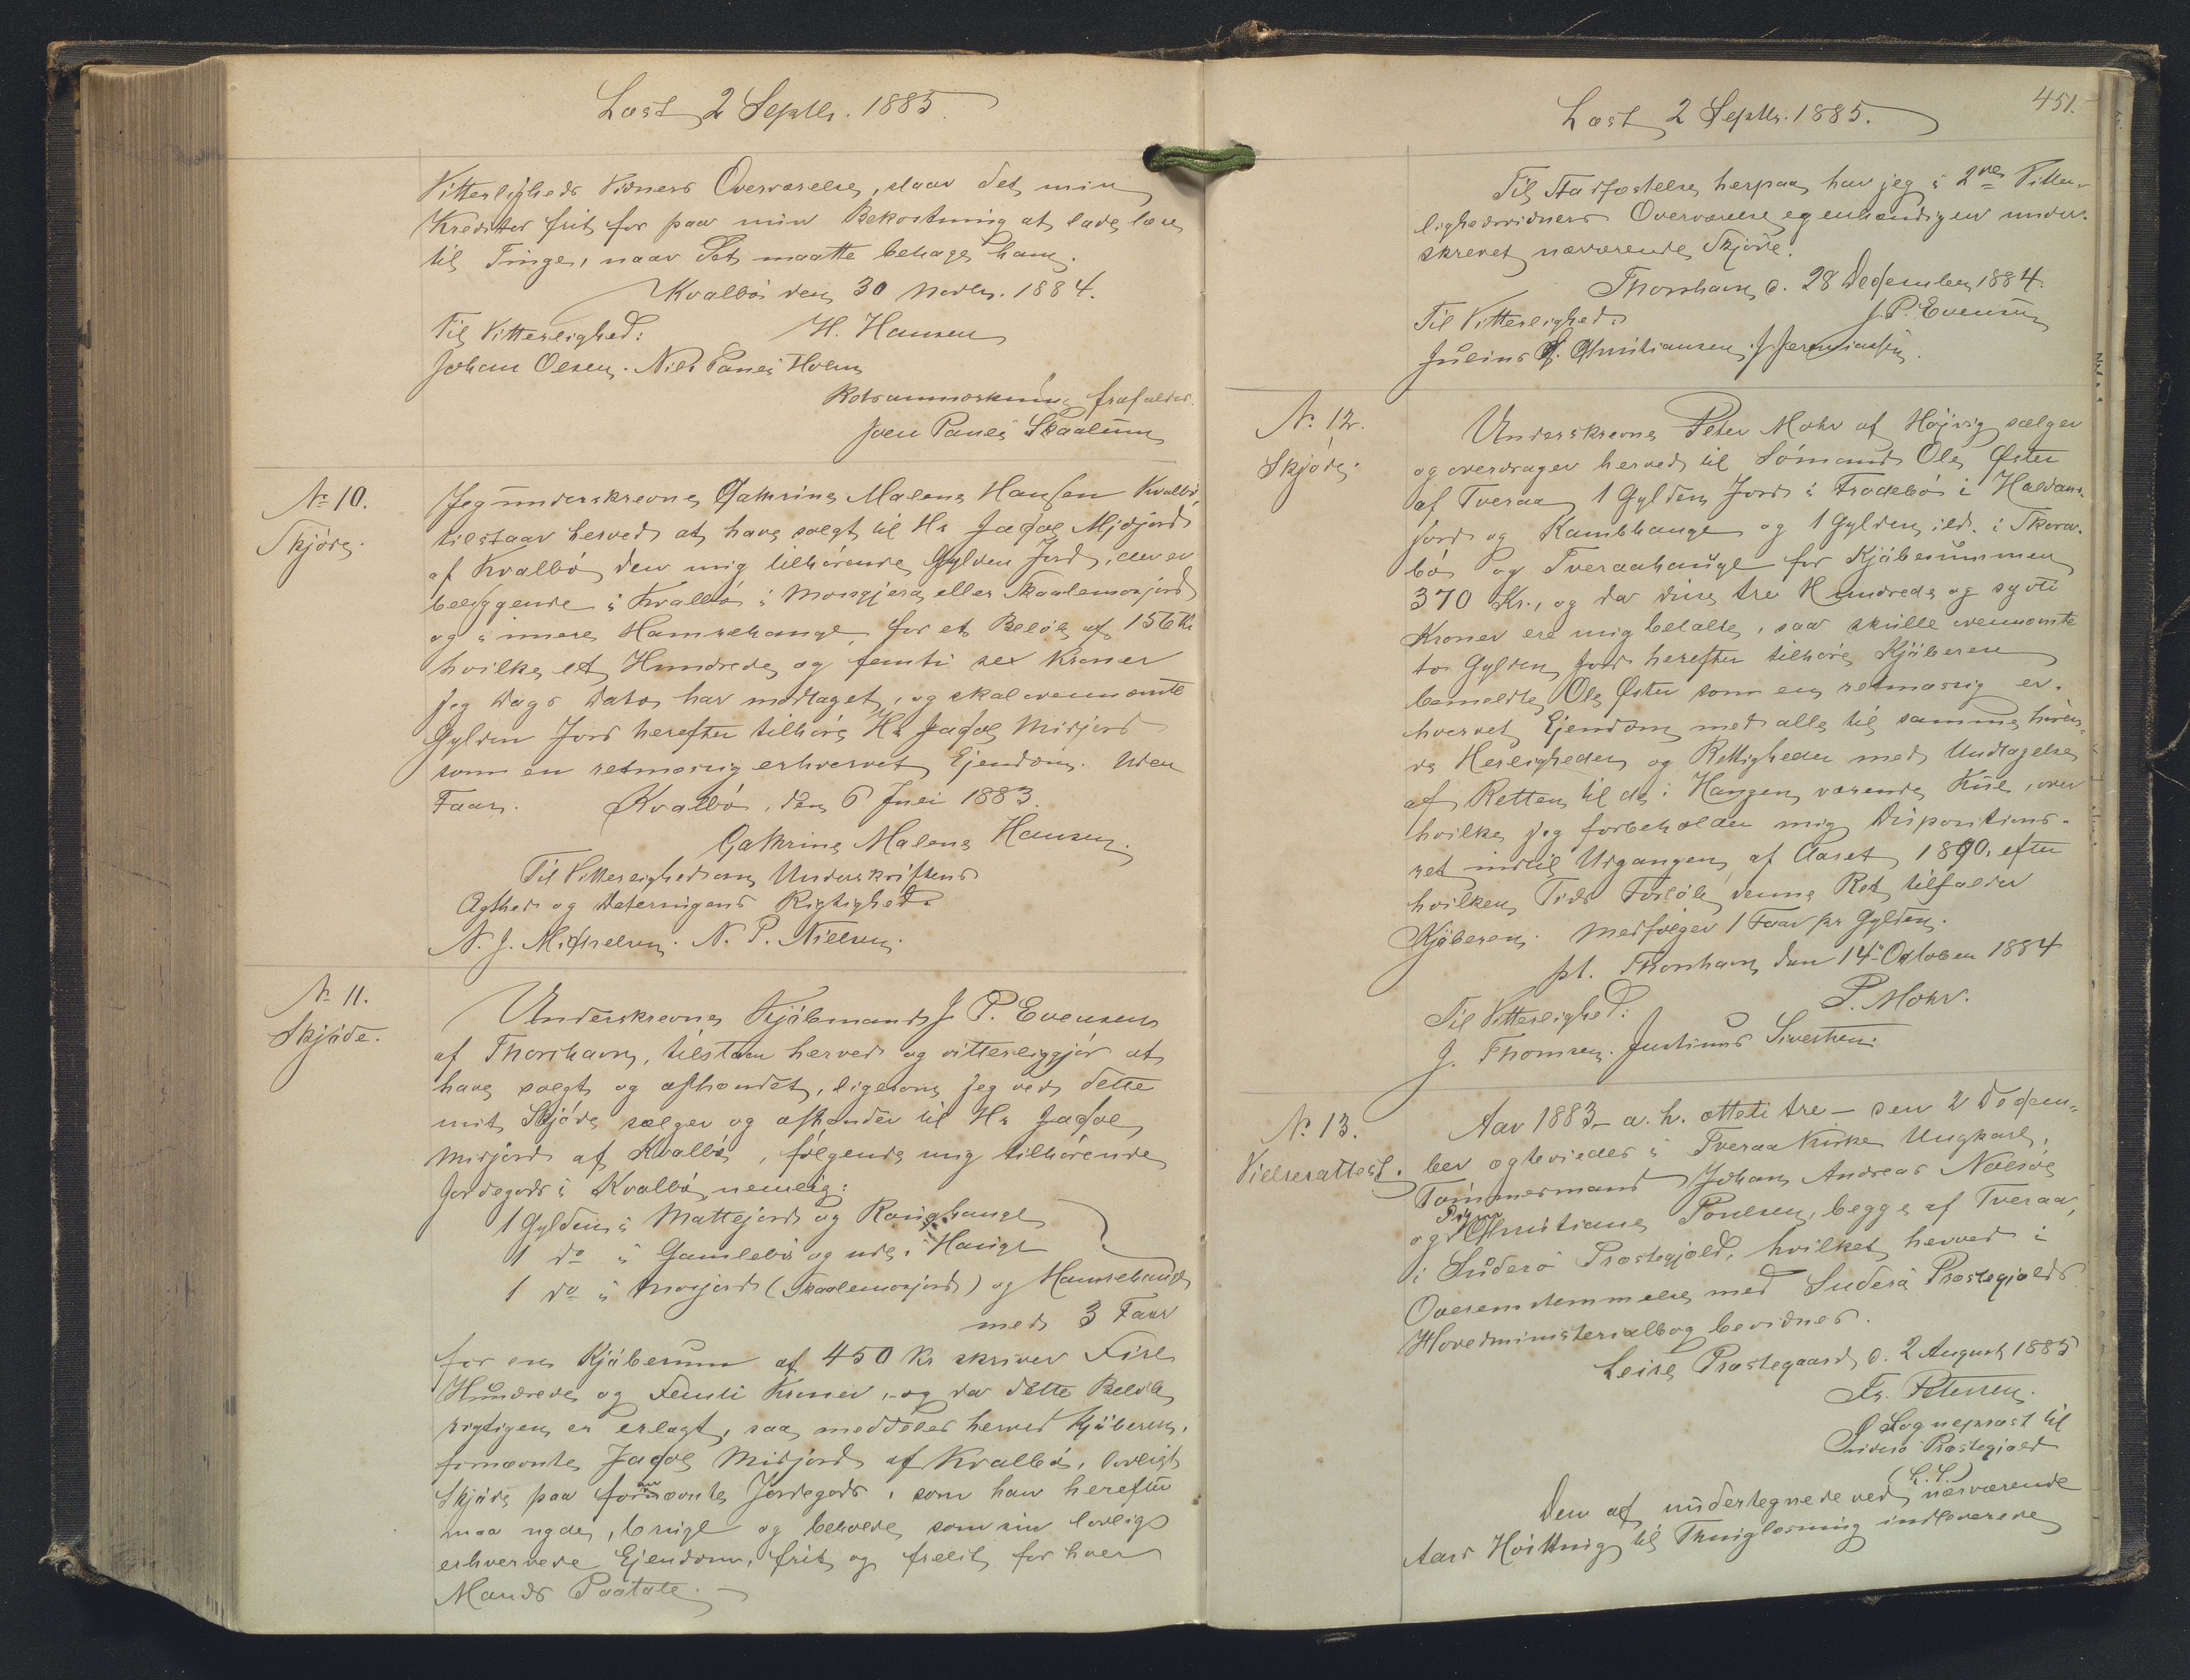 Læst 2 Septbr. 1885.
Vitterligheds Vidners Overværelse, staar det min
Kreditor frit for paa min Bekostning at lade læse
til Tinge, naar det maatte behage ham.
Kvalbø den 30 Novbr. 1884.
Til Vitterlighed: H. Hansen
Johan Olsen. Nils Pauli Holm
Retsanmærkning frafaldes.
Joen Pauli Skaalum
No 10.
Skjøde.
Jeg underskrevne Cathrine Malene Hansen Kvalbø,
tilstaar herved at have solgt til Hr Jacob Midjord
af Kvalbø den mig tilhørende Gylden Jord, der er
beliggende i Kvalbø i Mosgjera eller Skaalemosjord
og i innere Hamrehauge for et Beløb af 156 Kr
hvilke et Hundrede og femti sex Kroner
jeg Dags Dato har modtaget, og skal ovennævnte
Gylden Jord herefter tilhøre Hr Jacob Midjord
som en retmæssig erhvervet Ejendom. Uden
Faar. Kvalbø, den 6 Juli 1883.
Cathrine Malene Hansen.
Til Vitterlighed om Underskriftens
Ægthed og Dateringens Rigtighed.
N. J. Michelsen. N. P. Nielsen.
No 11.
Skjøde.
Underskrevne Kjøbmand J. P. Evensen
af Thorshavn, tilstaar herved og vitterliggjør at
have solgt og afhændet, ligesom jeg ved dette
mit Skjøde sælger og afhænder til Hr Jacob
Midjord af Kvalbø, følgende mig tilhørende
Jordegods i Kvalbø, nemlig:
1 Gylden i Mattejord og Hauge
1 do i Gamlebø og ude i Hauge
1 do i Mosjord (Skaalemosjord) og Hamrehauge
med 3 Faar
for en Kjøbesum af 450 Kr skriver Fire
Hundrede og Femti Kroner, og da dette Beløb
rigtigen er erlagt, saa meddeles herved Kjøberen,
fornævnte Jacob Midjord af Kvalbø, lovligt
Skjøde paa fornævnte Jordegods, som han herefter
maa nyde, bruge og beholde som sin lovlig
erhvervede Ejendom, frit og frelst for hver
Mands Paatale.
451.
Læst 2 Septbr. 1885.
Til Stadfæstelse herpaa har jeg i 2de Vitter-
lighedsvidners Overværelse egenhændigen under-
skrevet nærværende Skjøde.
Thorshavn d. 28 December 1884.
Til Vitterlighed: J. P. Evensen
Julius Christiansen. J. Jeremiassen.
No 12.
Skjøde.
Underskrevne Peter Mohr af Højvig sælger
og overdrager herved til Sømand Ole Øster
af Tveraa 1 Gylden Jord i Frodebø i Haldans-
jord og Kambhauge og 1 Gylden ild. i Skora-
bø og Tveraahauge for Kjøbesummen
370 Kr., og da disse tre Hundrede og syvti
Kroner ere mig betalte, saa skulle ovennævnte
to Gylden Jord herefter tilhøre Kjøberen
bemeldte Ole Øster som en retmæssig er-
hvervet Ejendom med alle til samme høren-
de Herligheder og Rettigheder med Undtagelse
af Retten til de i Haugen værende Kul, over
hvilke jeg forbeholder mig Dispositions-
ret indtil Udgangen af Aaret 1890, efter
hvilken Tids Forløb denne Ret tilfalder
Kjøberen. Medfølger 1 Faar pr Gylden.
pt. Thorshavn den 14 October 1884
Til Vitterlighed: P. Mohr.
J. Thomsen. Justinus Sivertsen.
No 13.
Vielsesattest.
Aar 1883 – a. h. otteti tre – den 2 Decem-
ber ægteviedes i Tveraa Kirke Ungkarl,
Tømmermand Johan Andreas Nolsøe
og Pigen Christiane Poulsen, begge af Tveraa,
i Suderø Præstegjæld, hvilket herved i
Overensstemmelse med Suderø Præstegjælds
Hovedministerialbog bevidnes.
Leire Præstegaard d. 2 August 1885
Fr. Petersen.
Sognepræst til
Suderø Præstegjæld
(L. S.)
Den af undertegnede ved nærværende
Aars Høstting til Thinglæsning indleverede